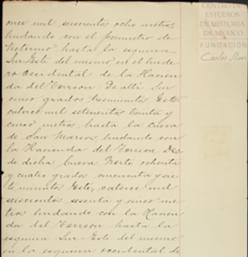 once mil seiscientos ocho metros,
lindando con el
hasta la esquina
Sur Este del mismo en el linde
ro Occidental de la Hacien
da del Torreon De allí Sur
cinco grados minutos Este
catorce mil setecientos treinta y
cinco metros hasta la Cueva
de San Marcos, lindando con
la Hacienda del Torreon De
de dicha Cueva Norte ochenta
y cuatro grados cincuenta y sie
te minutos Este, catorce mil
seiscientos sesenta y cinco me
tros lindando con la Hacien
da del Torreon hasta la
esquina Sur Este del mismo
en la esquina occidental de
CENTRO DE
ESTUDIOS
DE HISTORIA
DE MEXICO
FUNDACIÓN
Carlos Slim